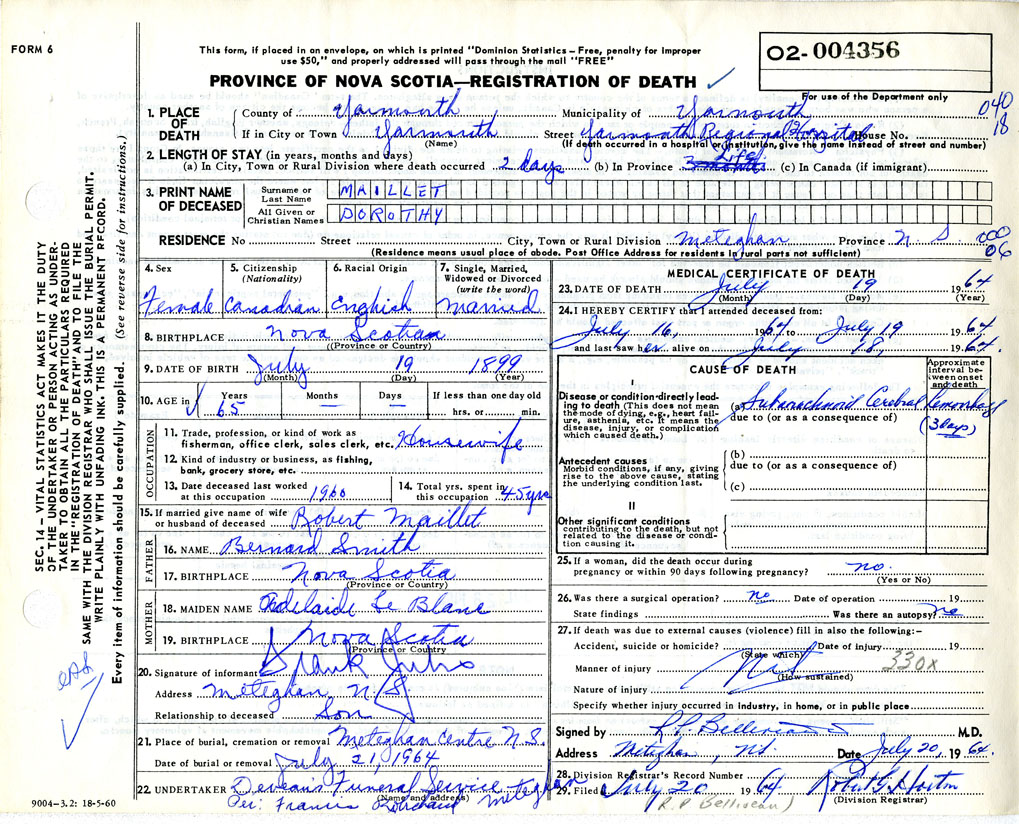 FORM 6
This form, if placed in an envelope, on which is printed "Dominion Statistics – Free, penalty for improper
use $50," and properly addressed will pass through the mail "FREE"
PROVINCE OF NOVA SCOTIA—REGISTRATION OF DEATH
O2- 004356
For use of the Department only
040
18
1. PLACE OF DEATH
County of Yarmouth Municipality of Yarmouth
If in City or Town Yarmouth Street Yarmouth Regional Hospital House No.
(Name) (If death occurred in a hospital or institution, give the name instead of street and number)
2. LENGTH OF STAY (in years, months and days)
(a) In City, Town or Rural Division where death occurred 2 days (b) In Province Life (c) In Canada (if immigrant)
3. PRINT NAME OF DECEASED
Surname or Last Name MAILLET
All Given or Christian Names DOROTHY
RESIDENCE No Street City, Town or Rural Division Meteghan Province N. S. 000
06
(Residence means usual place of abode. Post Office Address for residents in rural parts not sufficient)
4. Sex Female
5. Citizenship (Nationality) Canadian
6. Racial Origin English
7. Single, Married, Widowed or Divorced (write the word) Married
8. BIRTHPLACE Nova Scotian
(Province or Country)
9. DATE OF BIRTH July 19 1899
(Month) (Day) (Year)
10. AGE in Years Months Days If less than one day old
65 — — hrs. or min.
OCCUPATION
11. Trade, profession, or kind of work as
fisherman, office clerk, sales clerk, etc. Housewife
12. Kind of industry or business, as fishing,
bank, grocery store, etc.
13. Date deceased last worked
at this occupation 1960
14. Total yrs. spent in
this occupation 45 yrs
15. If married give name of wife
or husband of deceased Robert Maillet
FATHER
16. NAME Bernard Smith
17. BIRTHPLACE Nova Scotia
(Province or Country)
MOTHER
18. MAIDEN NAME Adelaide Le Blanc
19. BIRTHPLACE Nova Scotia
(Province or Country)
20. Signature of informant Frank
Address Meteghan, N.S.
Relationship to deceased Son
21. Place of burial, cremation or removal Meteghan Centre N.S.
Date of burial or removal July 21, 1964
22. UNDERTAKER Deveau's Funeral Service Meteghan
(Name and address)
Per: Francis
9004–3.2: 18-5-60
MEDICAL CERTIFICATE OF DEATH
23. DATE OF DEATH July 19 1964
(Month) (Day) (Year)
24. I HEREBY CERTIFY that I attended deceased from:
July 16, 1964 to July 19 1964
and last saw her alive on July 18, 1964.
CAUSE OF DEATH
Approximate interval between onset and death
I
Disease or condition directly leading to death (This does not mean the mode of dying, e.g., heart failure, asthenia, etc. It means the disease, injury, or complication which caused death.)
(a) Subarachnoid Cerebral Hemorrhage
due to (or as a consequence of) (3 days)
Antecedent causes
Morbid conditions, if any, giving rise to the above cause, stating the underlying condition last.
(b)
due to (or as a consequence of)
(c)
II
Other significant conditions
contributing to the death, but not related to the disease or condition causing it.
25. If a woman, did the death occur during
pregnancy or within 90 days following pregnancy? no.
(Yes or No)
26. Was there a surgical operation? no Date of operation 19
State findings Was there an autopsy? no
27. If death was due to external causes (violence) fill in also the following:–
Accident, suicide or homicide? Date of injury 19
(State which)
330X
Manner of injury
(How sustained)
Nature of injury
Specify whether injury occurred in industry, in home, or in public place
Signed by R.P. Belliveau M.D.
Address Meteghan, NS Date July 20, 1964.
28. Division Registrar's Record Number
29. Filed July 20 1964 Robert G Horton
(Division Registrar)
R. P Belliveau)
SEC. 14 – VITAL STATISTICS ACT MAKES IT THE DUTY
OF THE UNDERTAKER OR PERSON ACTING AS UNDER-
TAKER TO OBTAIN ALL THE PARTICULARS REQUIRED
IN THE "REGISTRATION OF DEATH" AND TO FILE THE
SAME WITH THE DIVISION REGISTRAR WHO SHALL ISSUE THE BURIAL PERMIT.
WRITE PLAINLY WITH UNFADING INK. THIS IS A PERMANENT RECORD.
Every item of information should be carefully supplied. (See reverse side for instructions.)